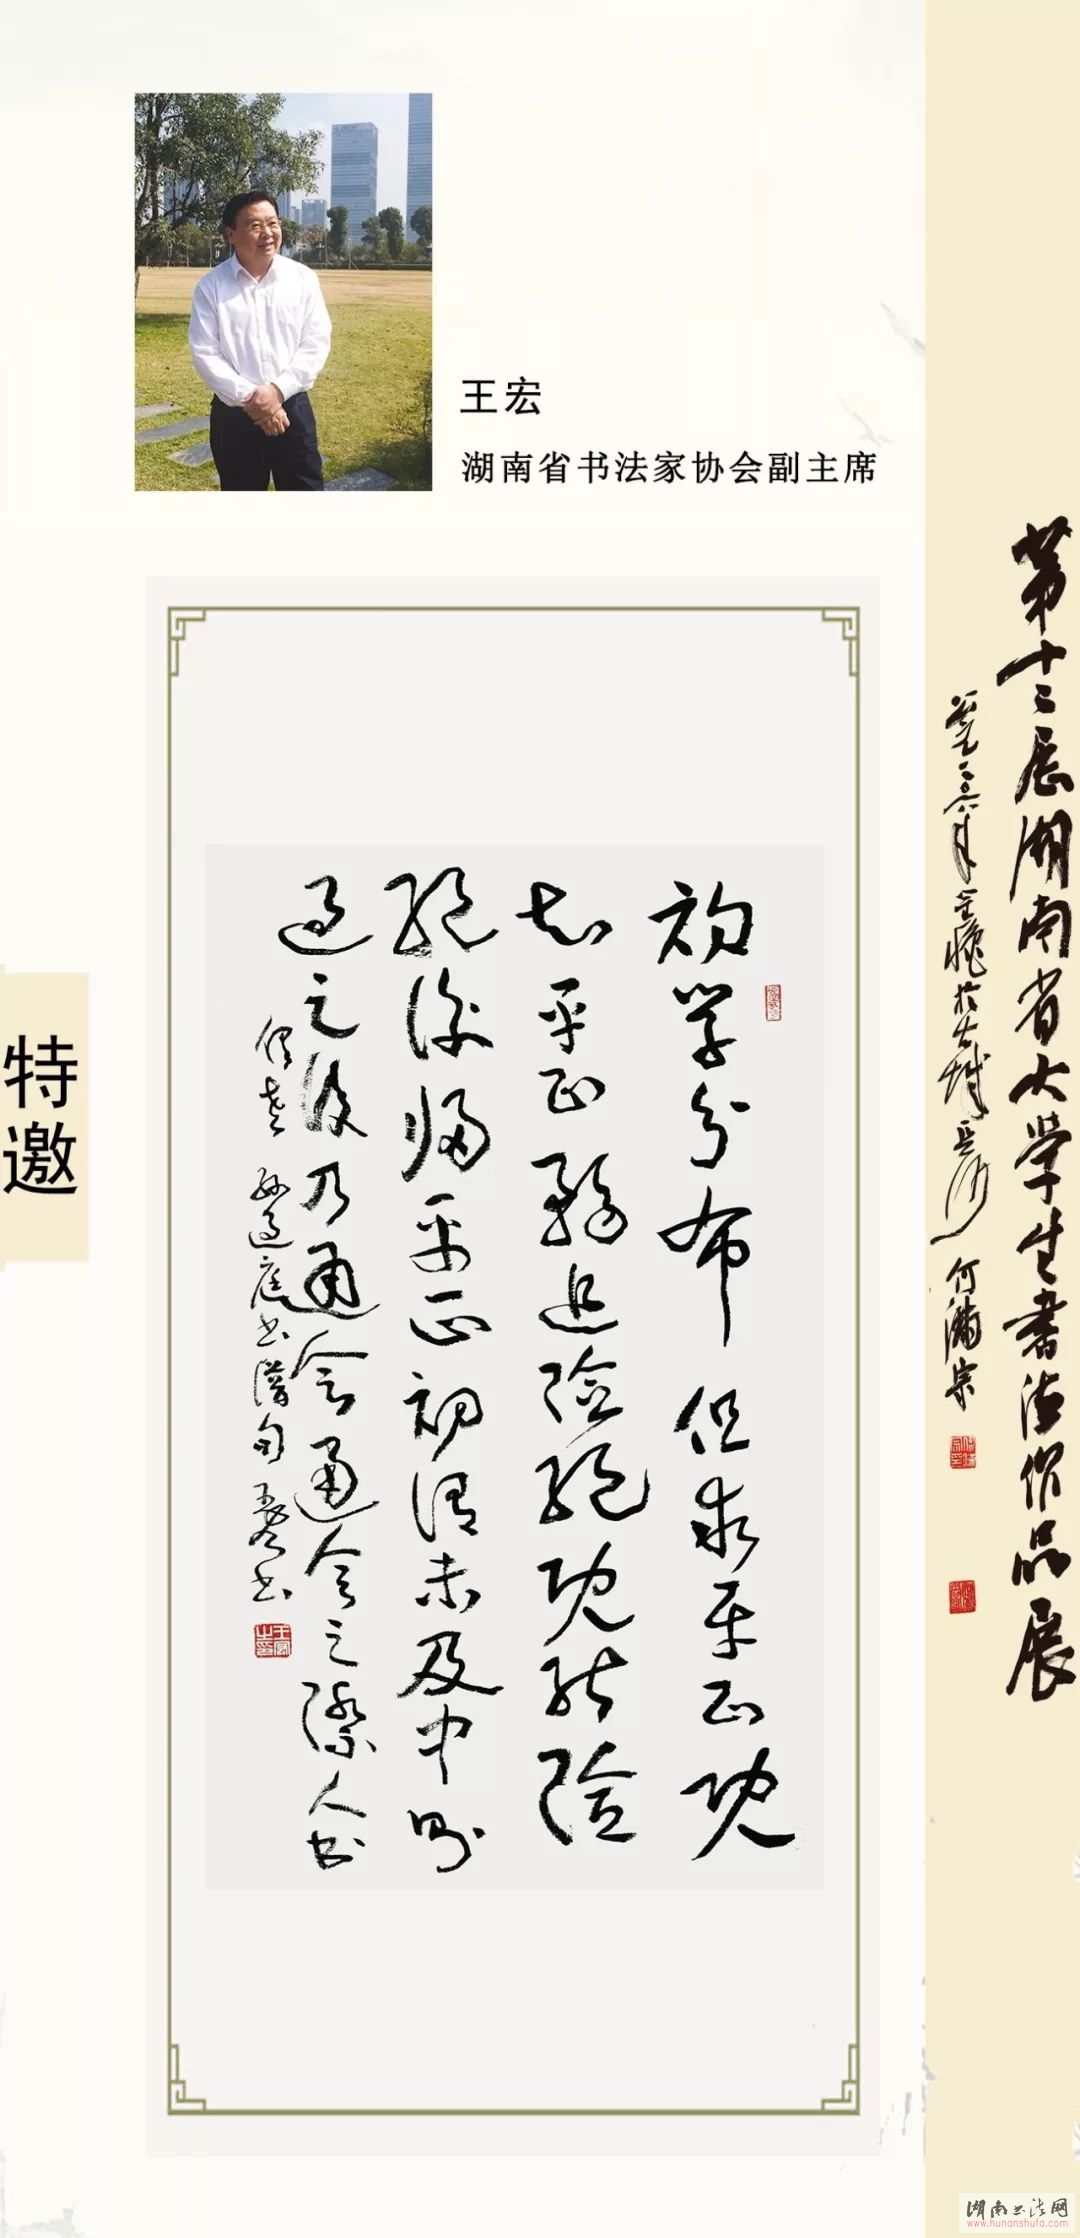 王宏
湖南省书法家协会副主席
特邀
初学分布但求平正既
知平正務追险绝既能险
绝复归平正初谓未及中则
过之后乃通会通会之际人书
俱老 孙过庭书谱句 王宏书
王宏之印
第十二届湖南省大学生书法作品展
何满宗
湖南书法网
www.hunanshufa.com